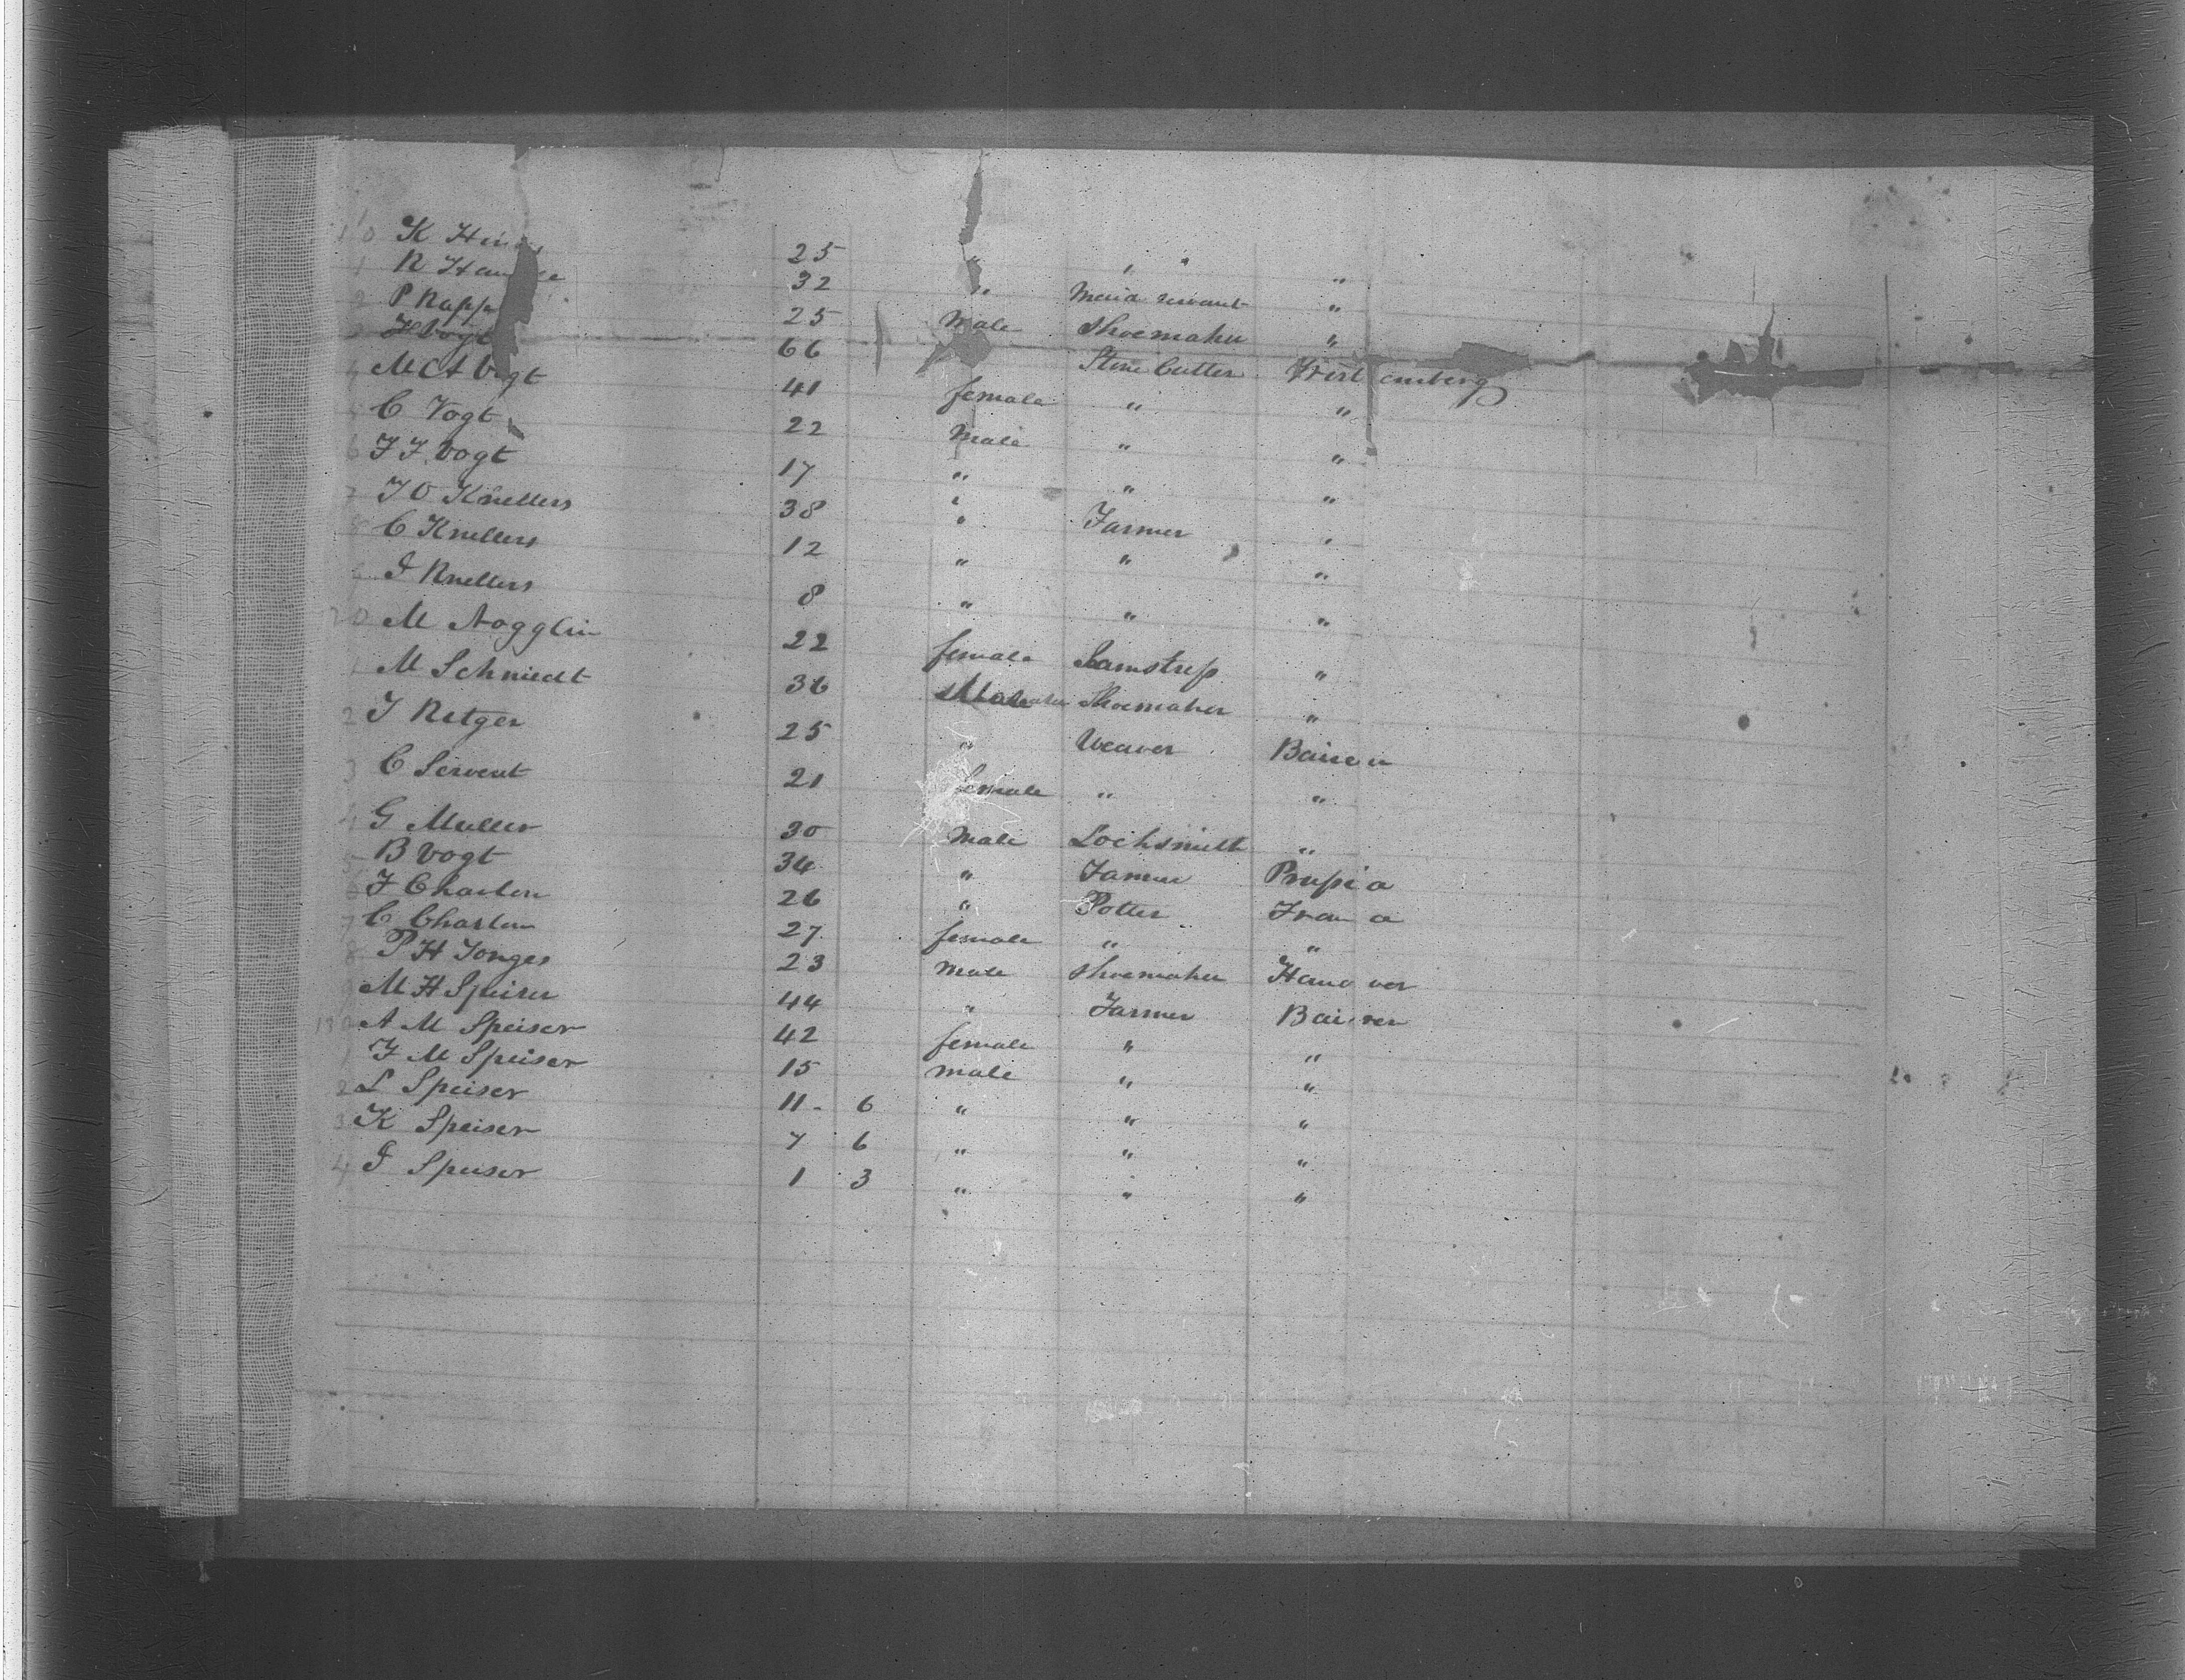 10 K 25 " " " "
1 R 32 " Maid servant "
2 P Rapp 25 Male Shoemaker "
3 J Vogt 66 Stone Cutter Wirtemberg
4 M A Vogt 41 female " "
5 C Vogt 22 Male " "
6 J J Vogt 17 " " "
7 J O Knellers 38 " Farmer "
8 C Knellers 12 " " "
9 J Knellers 8 " " "
20 M Nogglin 22 female Seamstress "
1 M Schmiedt 36 Male Shoemaker "
2 J Retger 25 " Weaver Bairen
3 C Servent 21 female " "
4 G Muller 30 Male Locksmith "
5 B Vogt 34 " Farmer Prussia
6 J Charlon 26 " Potter
7 C Charlon 27 female " "
8 P H Jonges 23 Male Shoemaker Hanover
9 M H Speiser 44 " Farmer Bairen
130 A M Speiser 42 female " "
1 J M Speiser 15 male " "
2 L Speiser 11 - 6 " " "
3 K Speiser 7 6 " " "
4 J Speiser 1 3 " " "